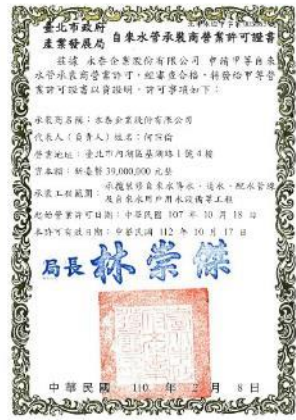 臺北市政府
產業發展局
自來水管承裝商營業許可證書
茲據 永泰企業股份有限公司 申請甲等自來
水管承裝商營業許可,經審查合格,特發給甲等營
業許可證書以資證明,許可事項如下:
承裝商名稱:永泰企業股份有限公司
代表人(負責人)姓名:何
營業地址:臺北市內湖區基湖路1號4樓
資本額:新臺幣39,000,000元整
承裝工程範圍:承攬裝修自來水導水、送水、配水管線
及自來水用戶用水設備等工程
起始營業許可日期:中華民國 107 年 10 月 18 日
本許可有效日期:中華民國 112 年 10 月 17 日
局長 林崇傑
中華民國 110 年 2 月 8 日